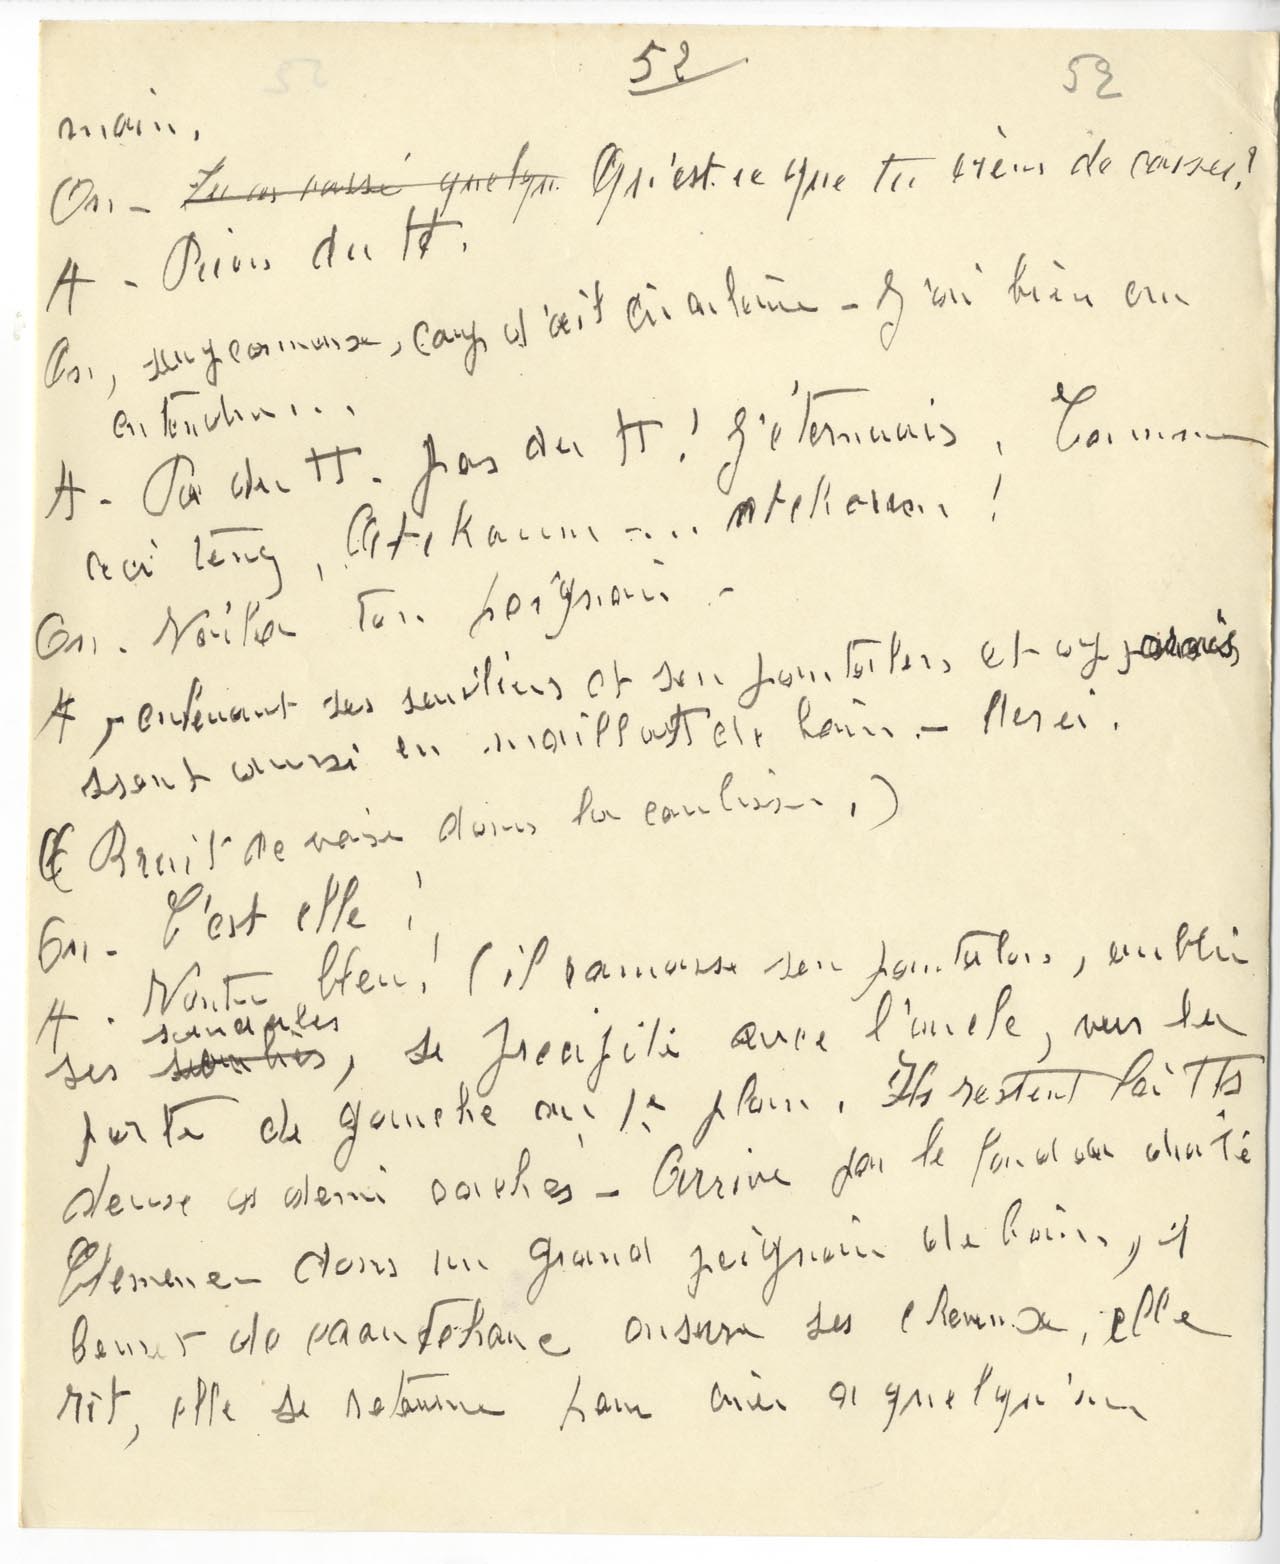 52 52
main.
On – Tu as cassé quelqu Qu'est-ce que tu viens de casser?
A – Rien du tt.
On, soupçonneux, coup d'œil circulaire – J'ai bien cru
entendre...
A – Pa du tt. pas du tt! J'éternuais. Comme
ceci teng, Atchaoum – ... atchaoum!
On. Voilà ton peignoir –
A, enlevant ses souliers et son pantalon et apparais
ssant aussi en maillot de bain. – Merci.
(Bruit de voix dans la coulisse.)
On – C'est elle!
A. Ventre bleu! (il ramasse son pantalon, oublie
sandales
ses souliers, se précipite avec l'oncle, vers la
porte de gauche au 1er plan. Ils restent là tts
deux à demi cachés – Arrive par le fond à droite
Clémence dans un grand peignoir de bain, 1
bonnet de caoutchouc enserre ses cheveux, elle
rit, elle se retourne pour crier à quelqu'un